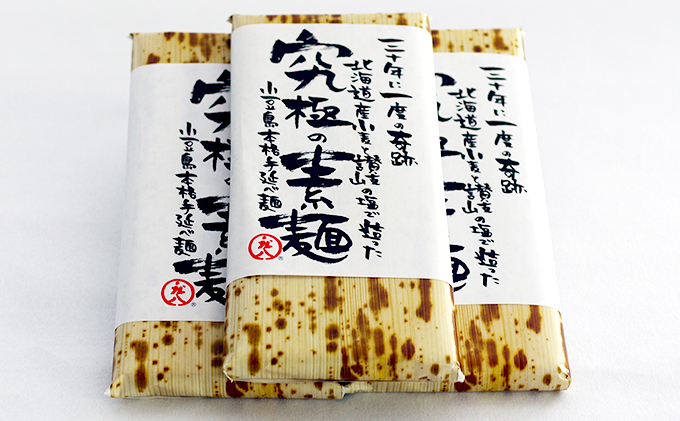 三十年に一度の奇跡
北海道産小麦と讃岐の塩で造った
究極の素麺
小豆島本格手延べ麺
三十年に一度の奇跡
北海道産小麦と讃岐の塩で造った
究極の素麺
小豆島本格手延べ麺